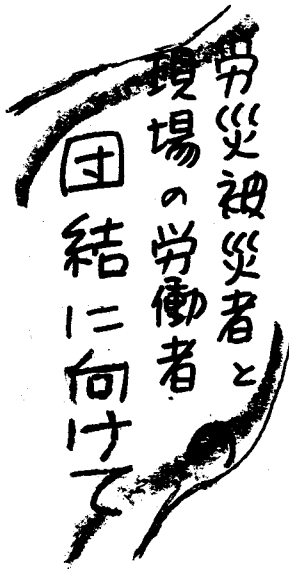 労災被災者と
現場の労働者
団結に向けて